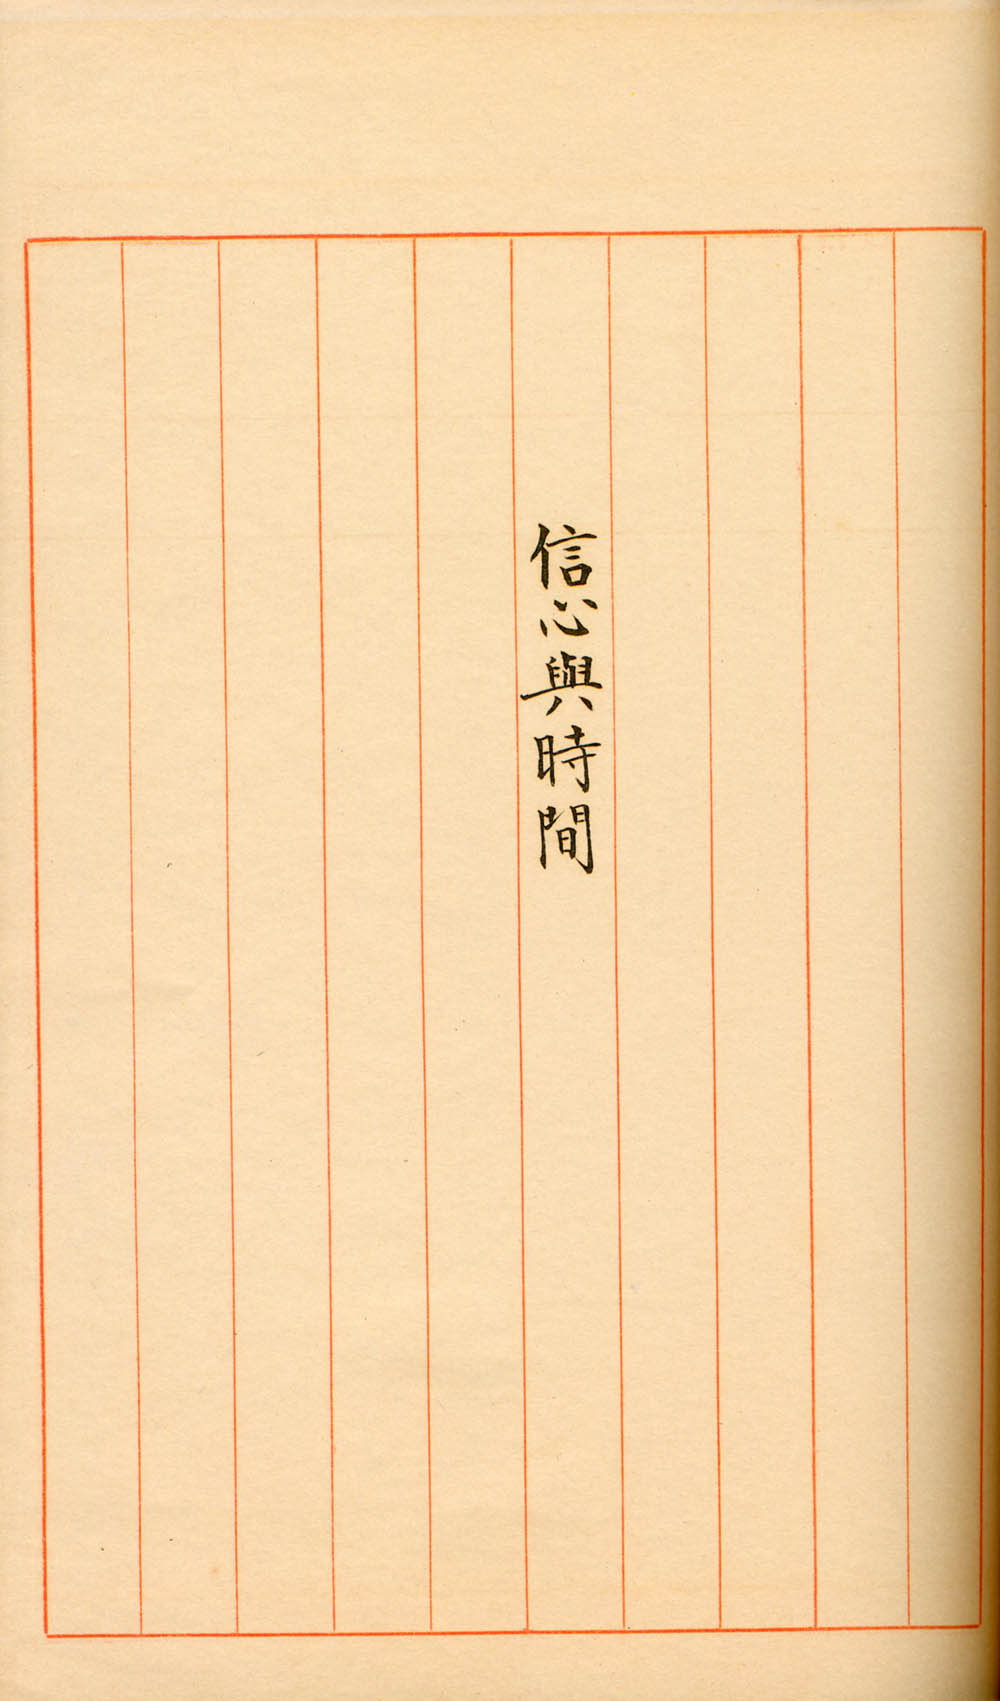 信心與時間